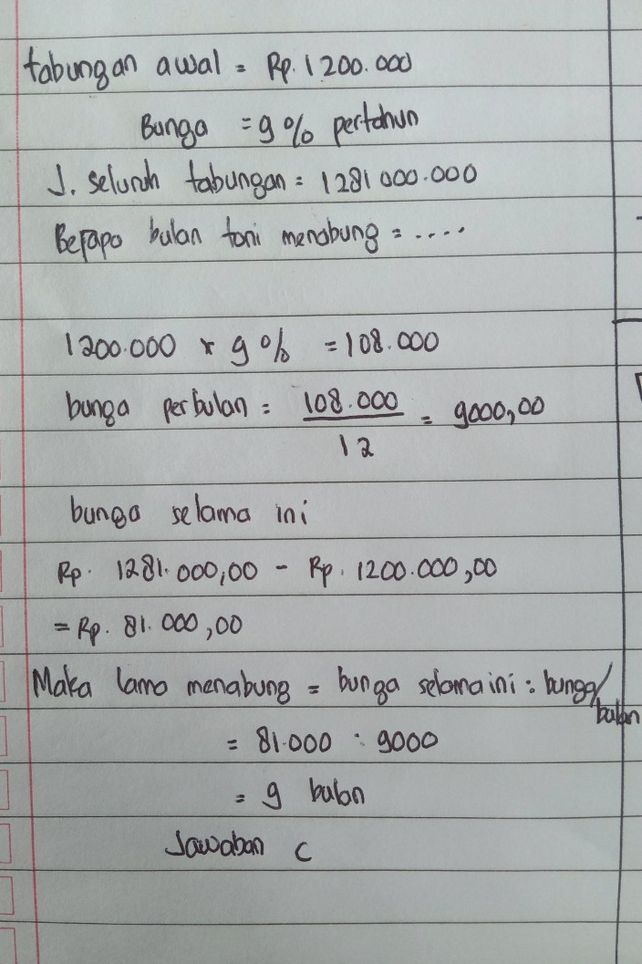 tabungan awal = Rp. 1200.000
Bunga = 9% pertahun
J. seluruh tabungan = 1281000.000
Berapa bulan toni menabung = ....
1200.000 x 9% = 108.000
bunga perbulan = 108.000 / 12 = 9000,00
bunga selama ini
Rp. 1281.000,00 - Rp. 1200.000,00
= Rp. 81.000,00
Maka lama menabung = bunga selama ini : bunga/bulan
= 81.000 : 9000
= 9 bulan
Jawaban C